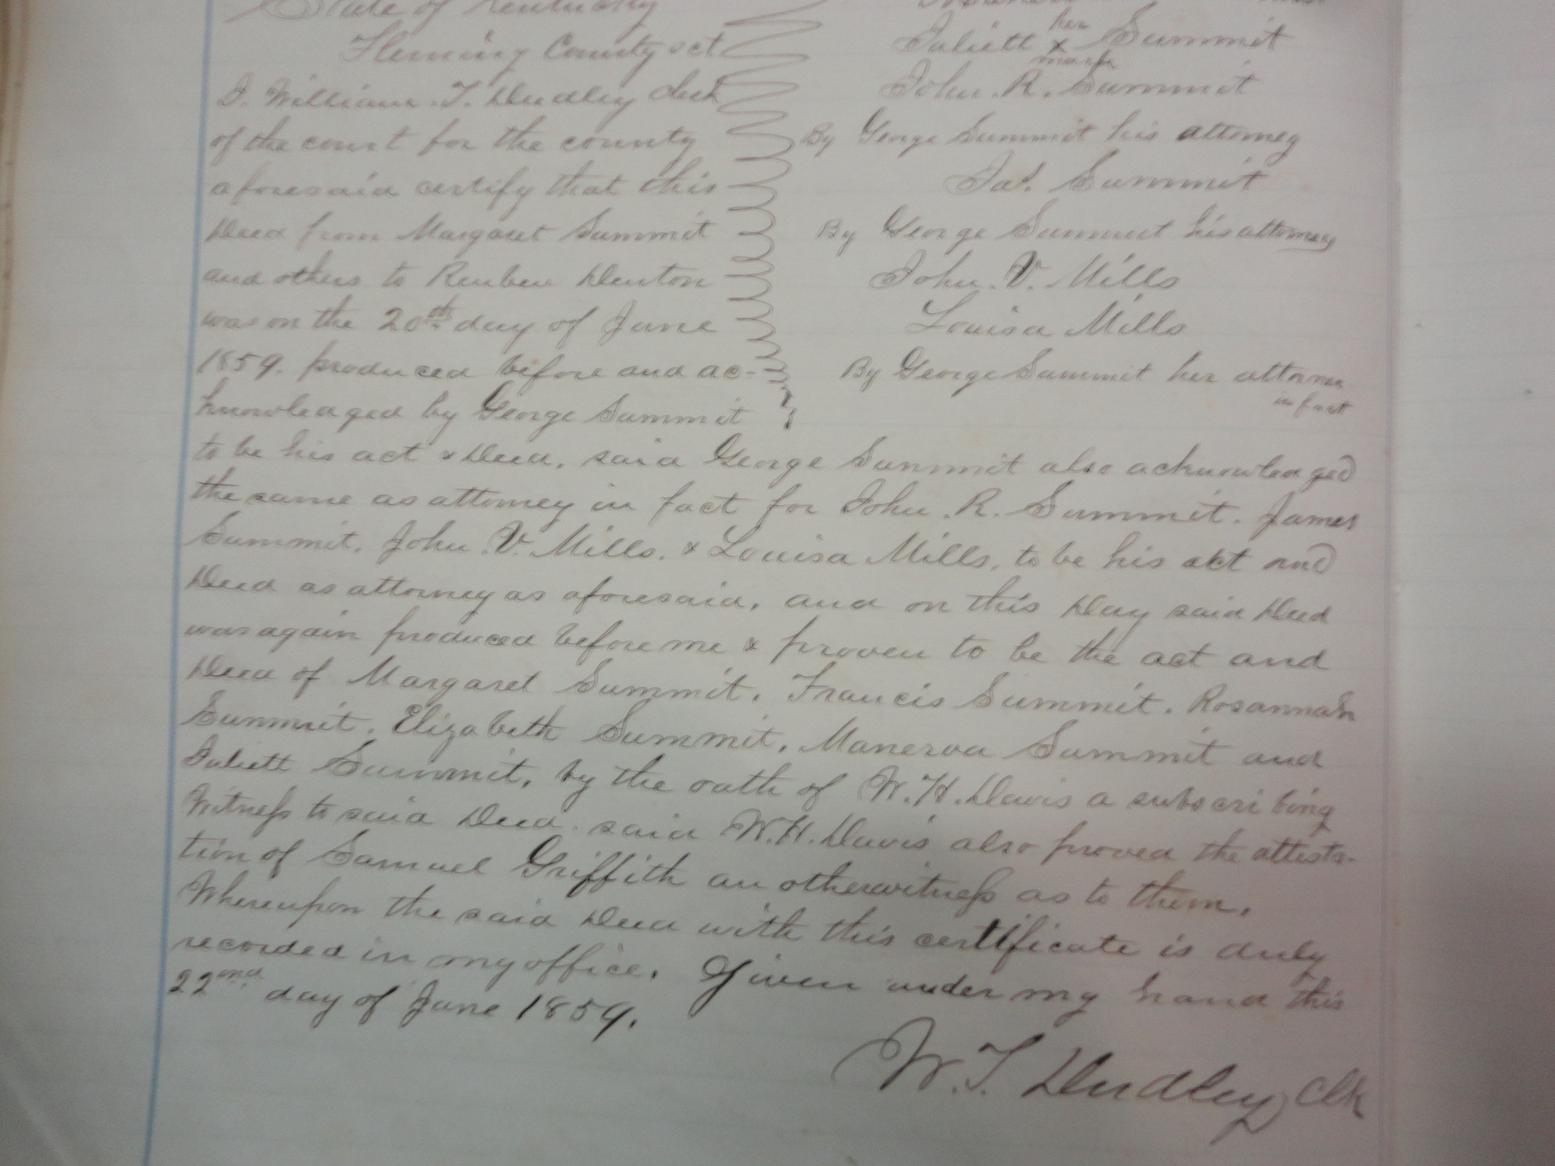 State of Kentucky
Fleming County sct
I. William. T. Dudley clerk
of the court for the county
aforesaid certify that this
Deed from Margaret Summit
and others to Reuben Denton
was on the 20th day of June
1859. produced before and ac-
knowledged by George Summit
her
Juliett x Summit
mark
John. R. Summit
By George Summit his attorney
Jas. Summit
By George Summit his attorney
John. V. Mills
Louisa Mills
By George Summit her attorney
in fact
to be his act & Deed. said George Summit also acknowledged
the same as attorney in fact for John. R. Summit. James
Summit. John. V. Mills. & Louisa Mills. to be his act and
Deed as attorney as aforesaid. and on this Day said Deed
was again produced before me & proven to be the act and
Deed of Margaret Summit. Francis Summit. Rosannah
Summit. Elizabeth Summit. Manerva Summit and
Juliett Summit. by the oath of W. H. Davis a subscribing
Witness to said Deed. said W. H. Davis also proved the attesta-
tion of Samuel Griffith an other witness as to them.
Whereupon the said Deed with this certificate is duly
recorded in my office. Given under my hand this
22nd day of June 1859.
W. T. Dudley Clk